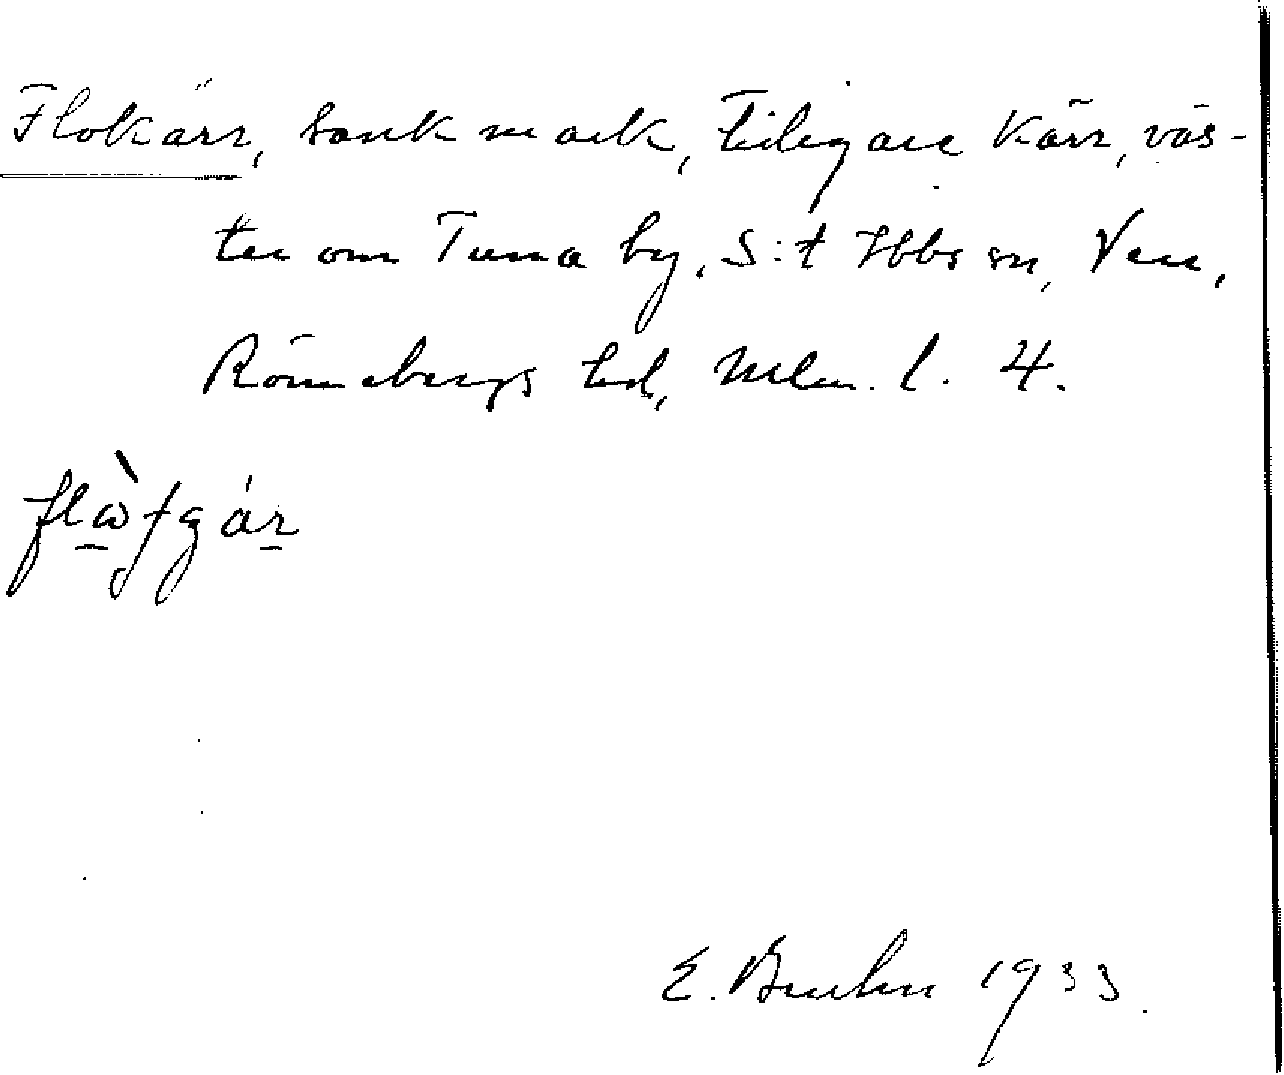 Flokärr, sank mark, tidigare kärr, väs-
ter om Tuna by, S:t Ibbs sn, Ven,
Rönnebergs hd, Mlm. l. 4.
E. Bruhn 1933.